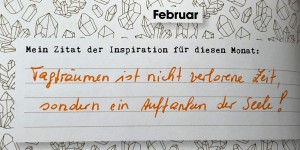 Februar
Mein Zitat der Inspiration für diesen Monat:
Tagträumen ist nicht verlorene Zeit,
sondern ein Auftanken der Seele!